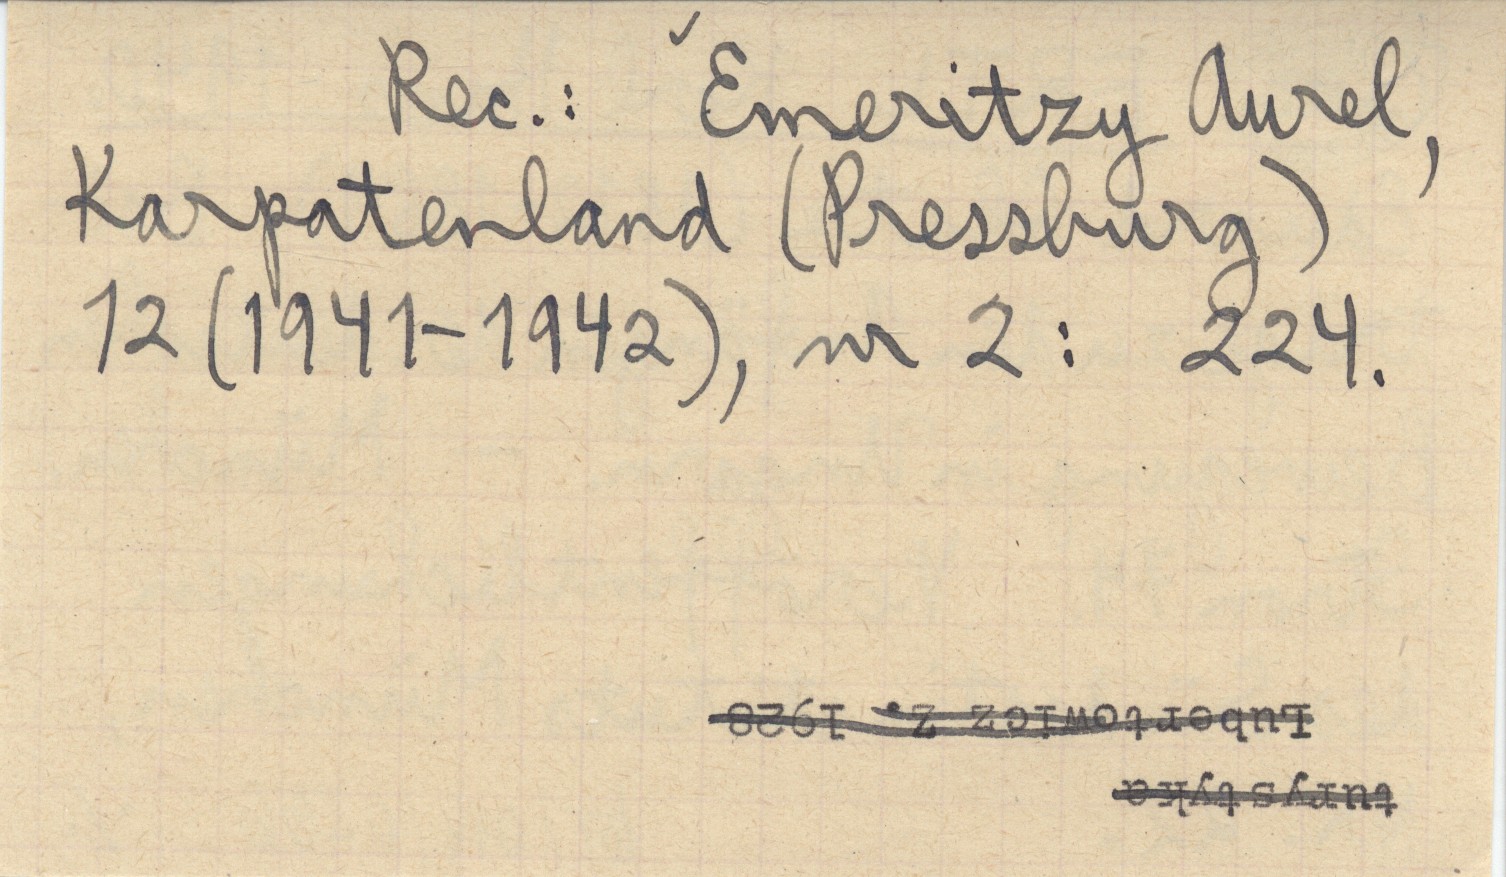 Rec.: Emeritzy Aurel,
Karpatenland (Pressburg)
12 (1941-1942), nr 2: 224.
Lubertowicz Z. 1928
turystyka